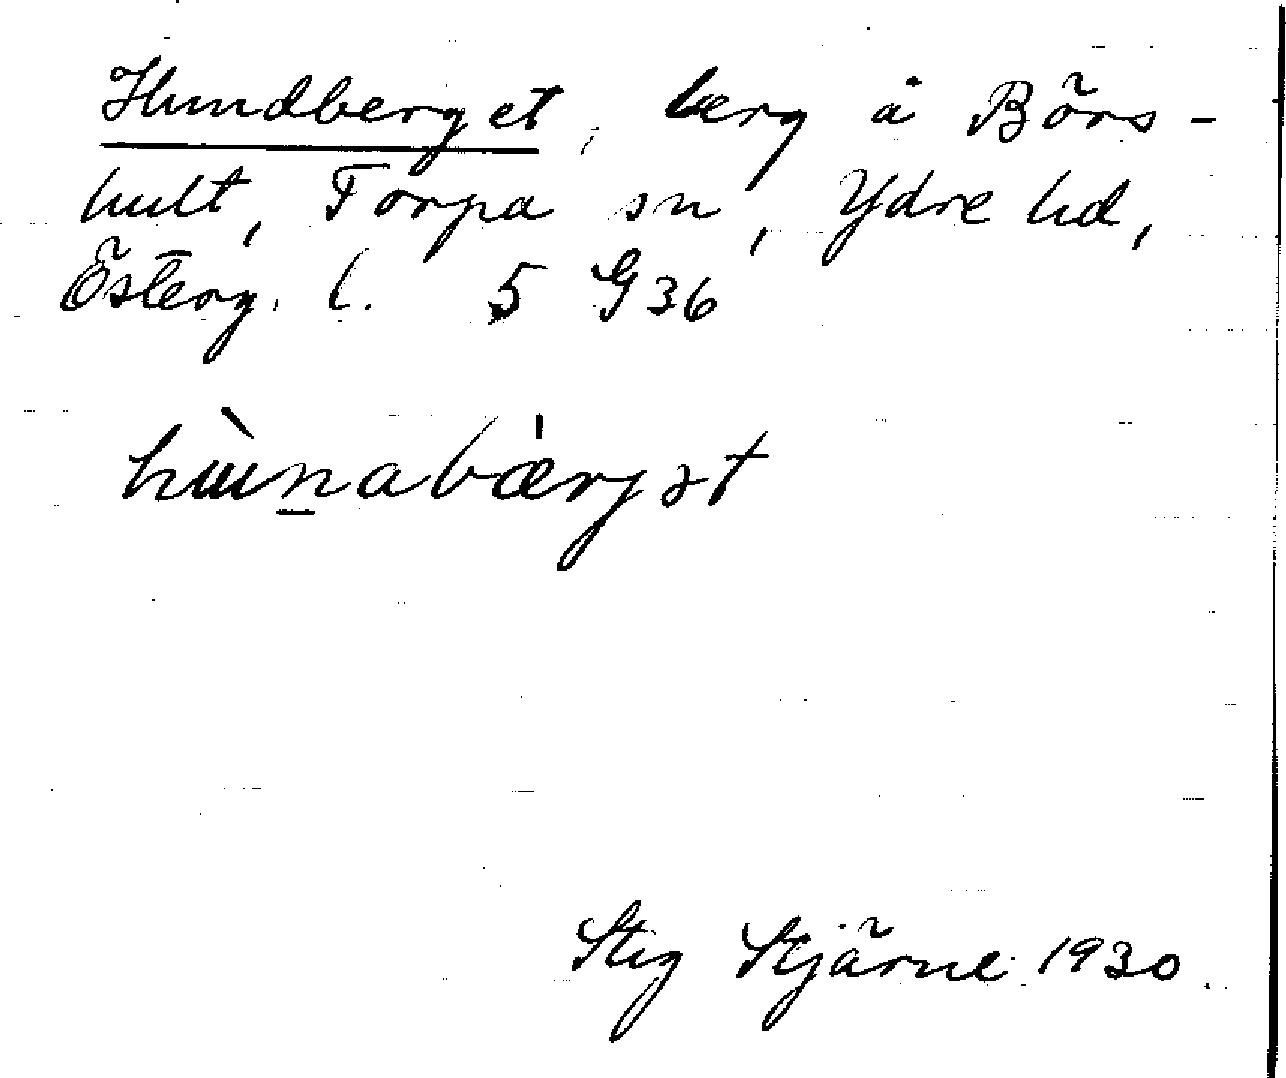 Hundberget, berg å Börs-
hult, Torpa sn, Ydre hd,
Österg. l. 5 G 36
hùnabàrjət
Stig Stjärne 1930.